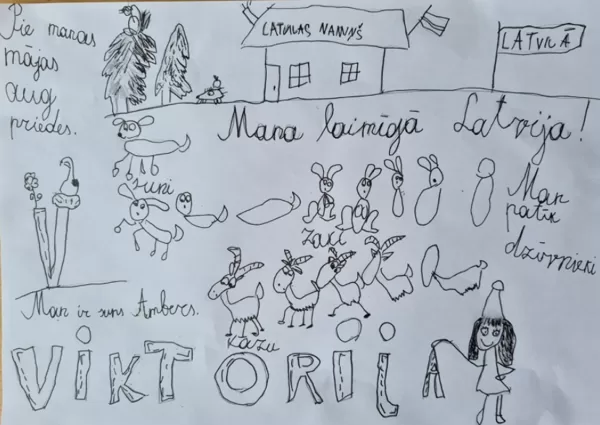 Pie manas
mājas
aug
priedes.
LATVIJAS NAMIŅŠ
LATVIJĀ
Mana laimīgā Latvija!
suņi
zaķi
Man
patīk
dzīvnieki
Man ir suns Ambers.
kazu
VIKTORIJA